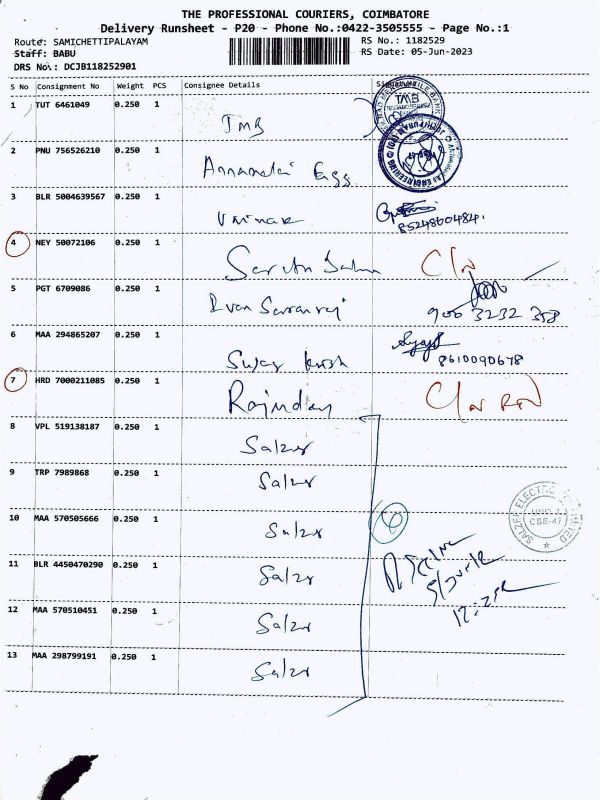 THE PROFESSIONAL COURIERS, COIMBATORE
Delivery Runsheet - P20 - Phone No.:0422-3505555 - Page No.:1
Route: SAMICHETTIPALAYAM RS No.: 1182529
Staff: BABU RS Date: 05-Jun-2023
DRS No.: DCJB118252901
S No Consignment No Weight PCS Consignee Details
1 TUT 6461049 0.250 1 TMB
TMB
2 PNU 756526210 0.250 1 Annamalai Egg
3 BLR 5004639567 0.250 1
8524860484.
4 NEY 50072106 0.250 1 C/N
5 PGT 6709086 0.250 1
900 3232 358
6 MAA 294865207 0.250 1
8610090678
7 HRD 7000211085 0.250 1 Rajinder C/N
8 VPL 519138187 0.250 1 Salzer
9 TRP 7989868 0.250 1 Salzer
10 MAA 570505666 0.250 1 Salzer 6
SALZER ELECTRONICS LIMITED
UNIT
CBE-47
11 BLR 4450470290 0.250 1 Salzer
12 MAA 570510451 0.250 1 Salzer
13 MAA 298799191 0.250 1 Salzer